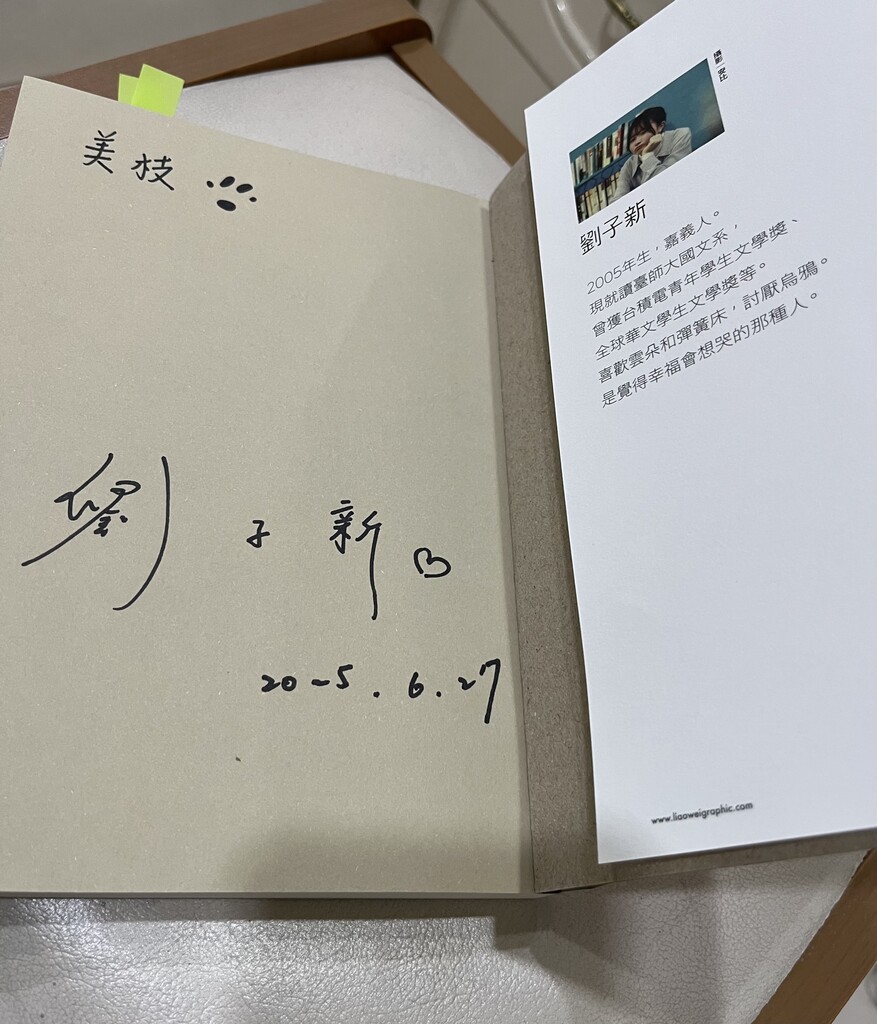 美枝
劉子新
2025.6.27
攝影｜安比
劉子新
2005年生，嘉義人。
現就讀臺師大國文系，
曾獲台積電青年學生文學獎、
全球華文學生文學獎等。
喜歡雲朵和彈簧床，討厭烏鴉。
是覺得幸福會想哭的那種人。
www.liaoweigraphic.com